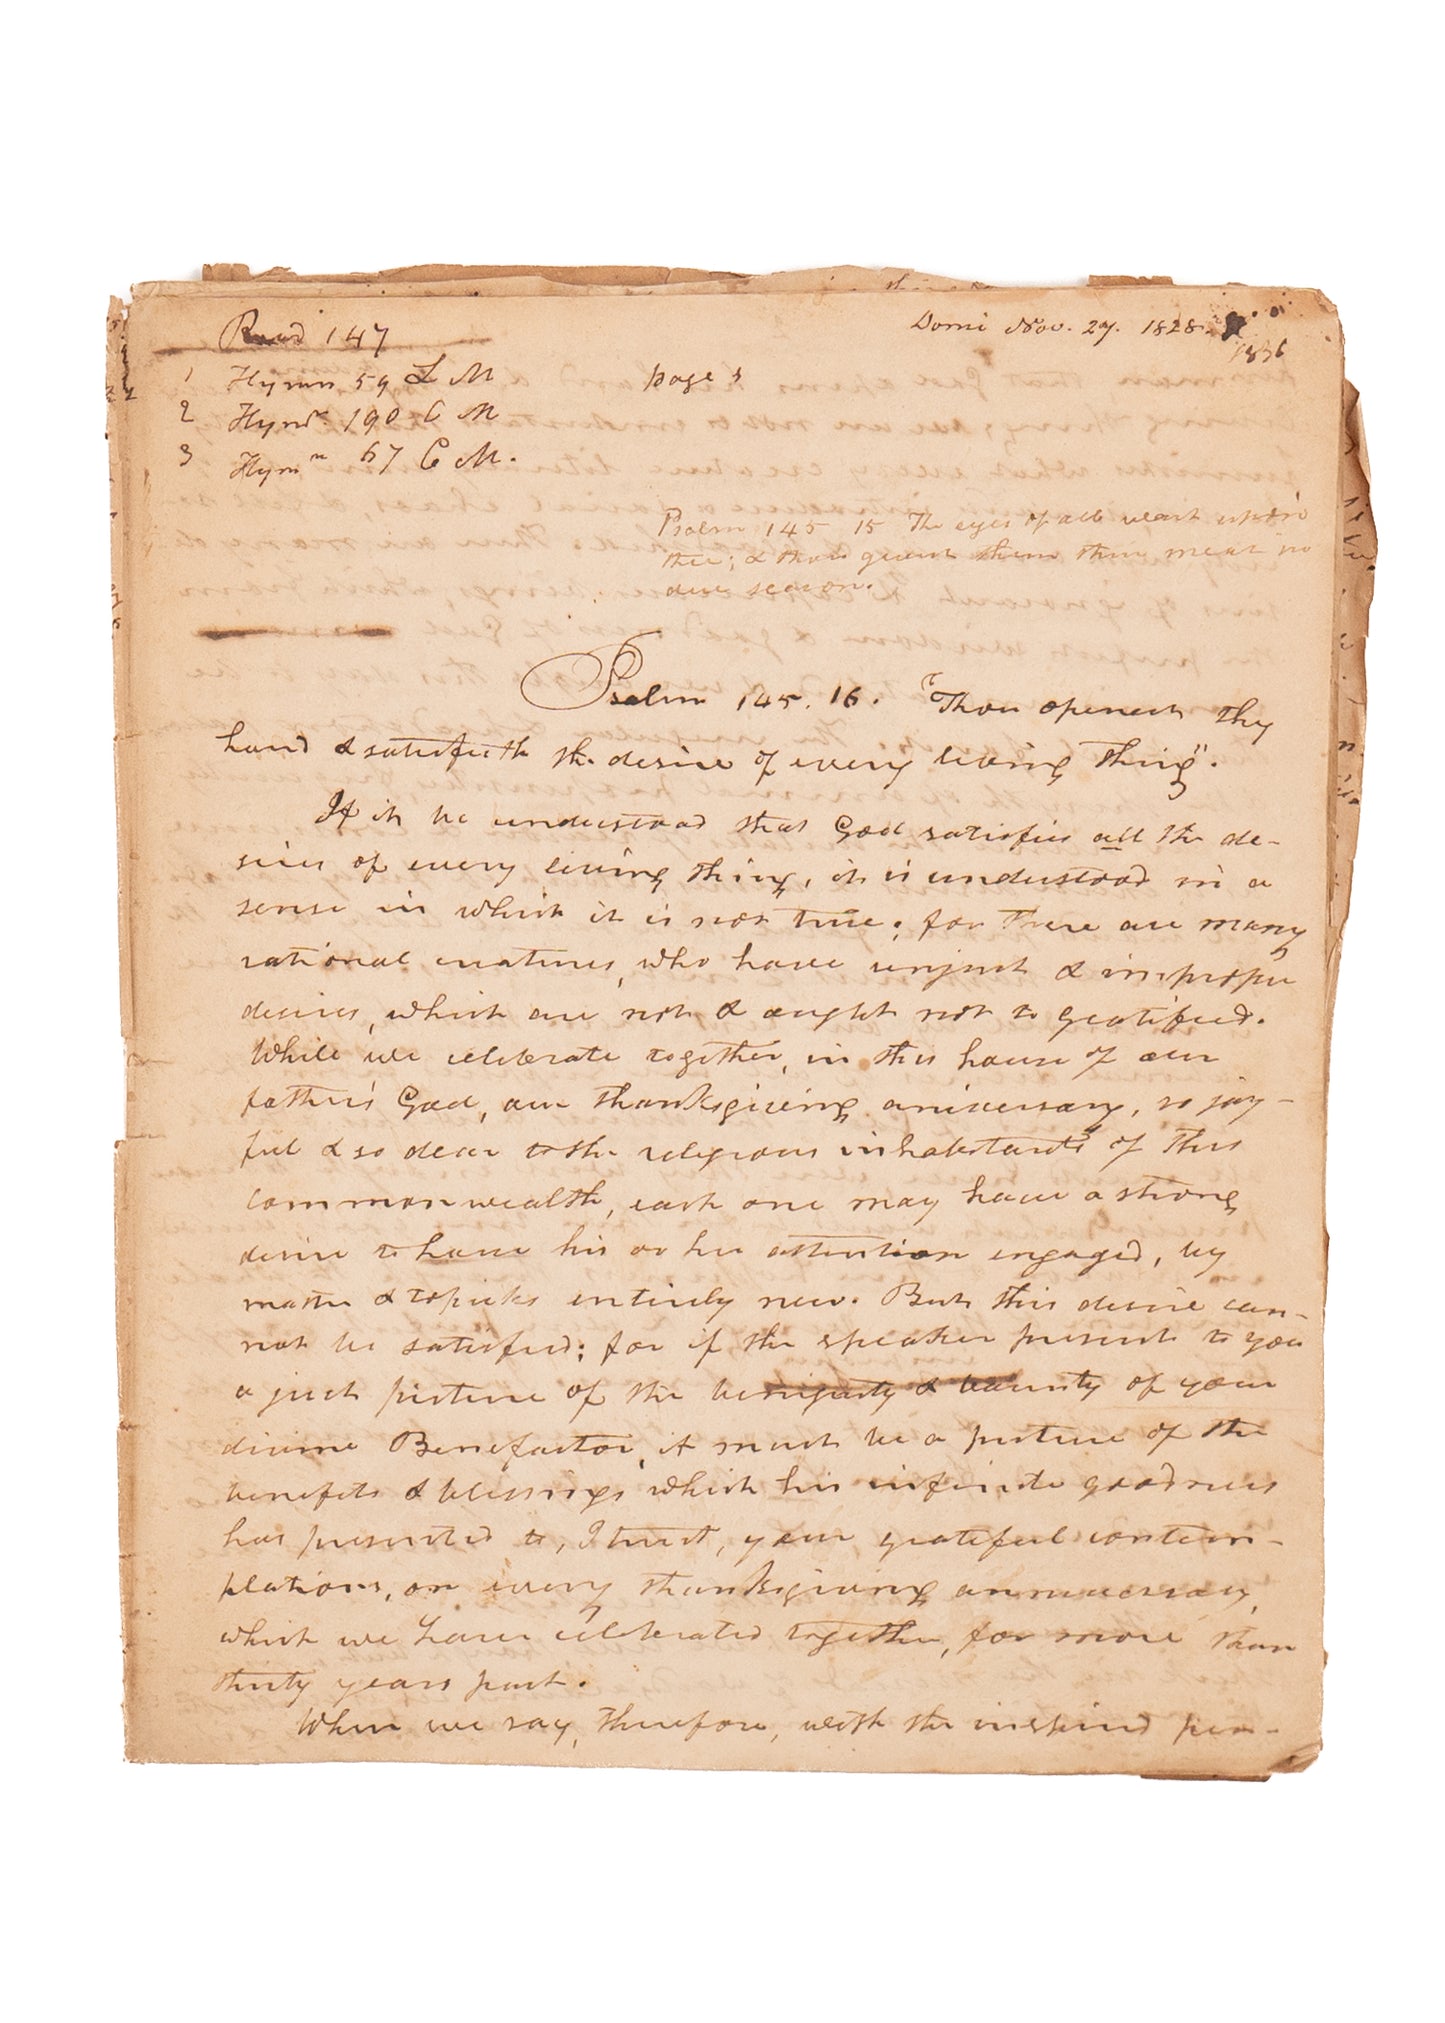 Read 147
Domi Nov. 27. 1828.
1836
1 Hymn 59 L M
page
2 Hymn 190 C M
3 Hymn 67 C M.
Psalm 145 15 The eyes of all wait upon
thee; & thou givest them their meat in
due season.
Psalm 145. 16. "Thou openest thy
hand & satisfieth the desire of every living thing".
If it be understood that God satisfies all the de-
sires of every living thing, it is understood in a
sense in which it is not true; for there are many
rational creatures, who have unjust & improper
desires, which are not & ought not to gratified.
While we celebrate together, in this house of our
father's God, our thanksgiving aniversary, so joy-
ful & so dear to the religious inhabitants of this
commonwealth, each one may have a strong
desire to have his or her attention engaged, by
matter & topicks entirely new. But this desire can-
not be satisfied; for if the speaker present to you
a just picture of the benignity & bounty of your
divine Benefactor, it must be a picture of the
benefits & blessings, which his infinite goodness
has presented to, I trust, your grateful contem-
plations, on every thanksgiving anniversary,
which we have celebrated together, for more than
thirty years past.
When we say, therefore, with the inspired pen-